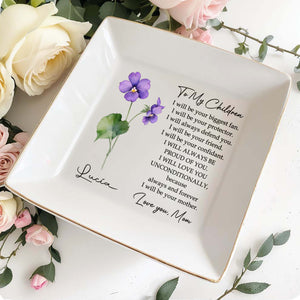 To My Children
I will be your biggest fan.
I will be your protector.
I will always defend you.
I will be your friend.
I will be your confidant.
I WILL ALWAYS BE
PROUD OF YOU.
I WILL LOVE YOU
UNCONDITIONALLY,
because
always and forever
I will be your mother.
Love you, Mom
Lucia